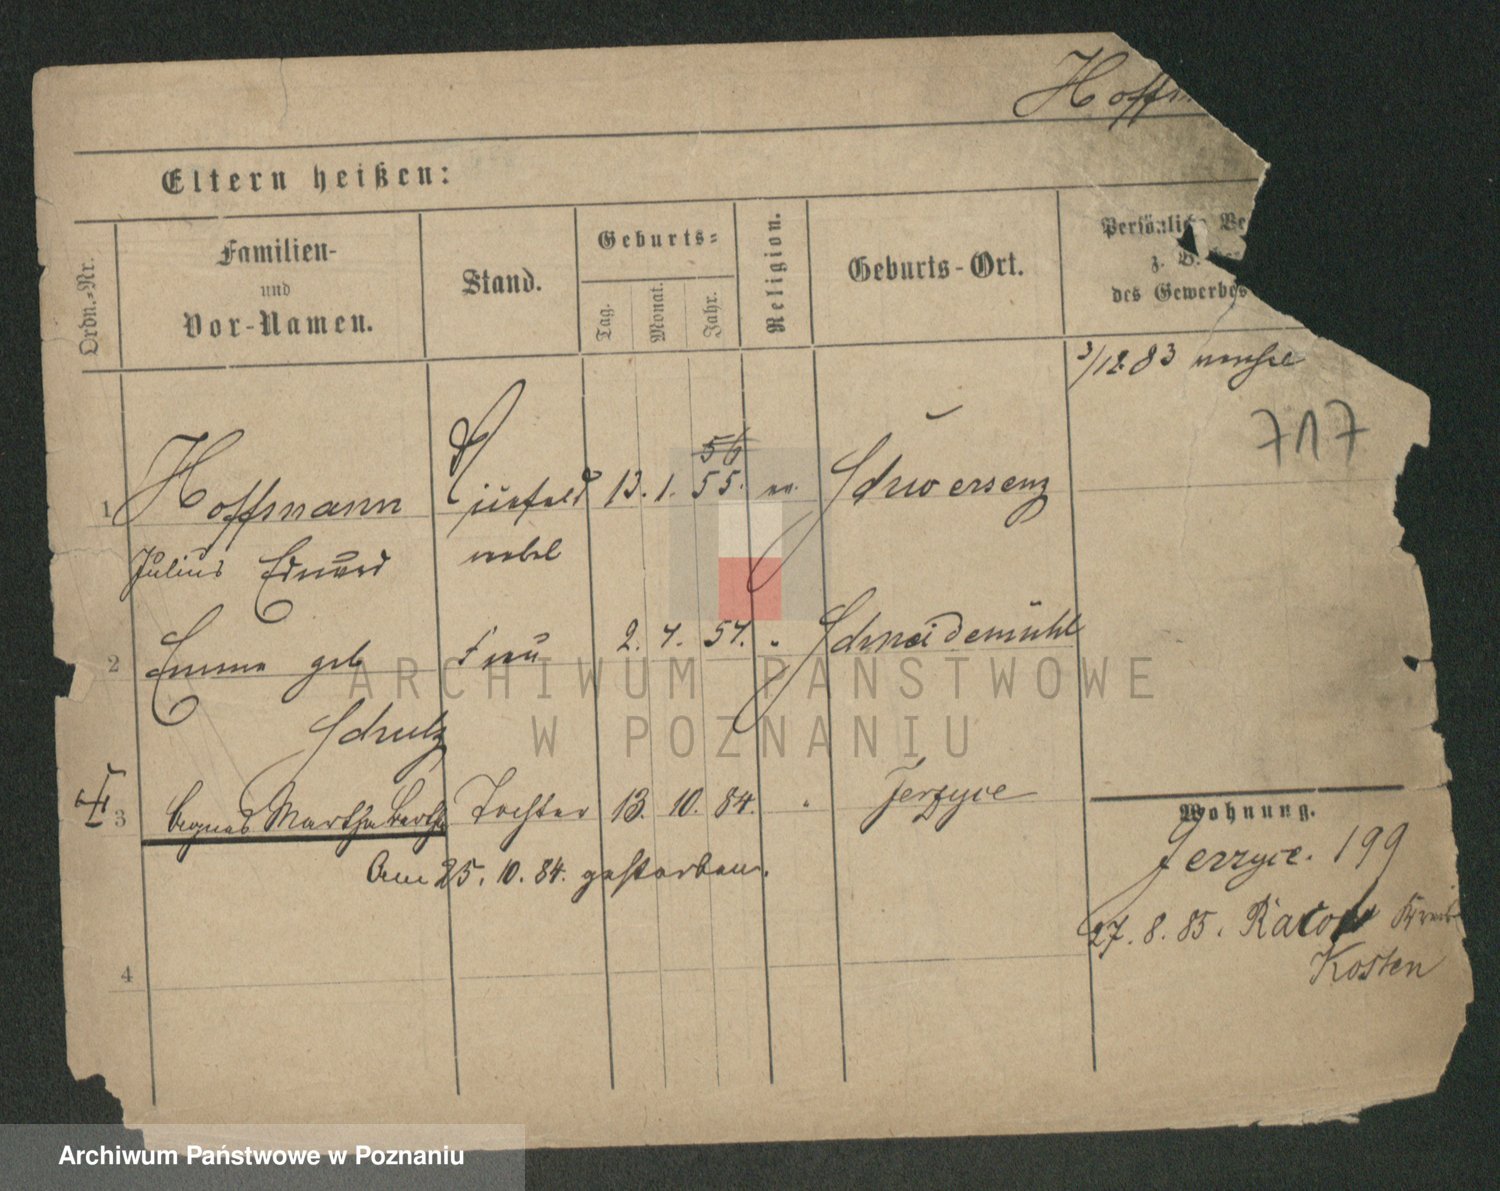 Hoffm
Eltern heißen:
Ordn.-Nr.
Familien-
und
Vor-Namen.
Stand.
Geburts-
Tag.
Monat.
Jahr.
Religion.
Geburts-Ort.
Persönliche Be
z. B.
des Gewerbes
3/12.83
717
1 Hoffmann 13. 1. 56 55. ev. Schwersenz
Julius Eduard webel
2 Emma geb Frau 2. 7. 57. " Schneidemühl
Schulz
3 Agnes Martha Bertha Tochter 13. 10. 84. " Jerzyce
Am 25. 10. 84. gestorben.
4
Wohnung.
Jerzyce. 199
27. 8. 85. Kreis
Kosten
ARCHIWUM PAŃSTWOWE
W POZNANIU
Archiwum Państwowe w Poznaniu